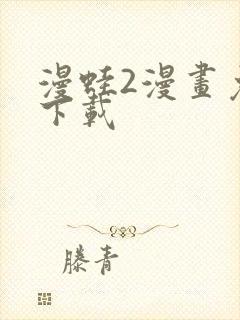 漫蛙2漫畫
下載
滕青